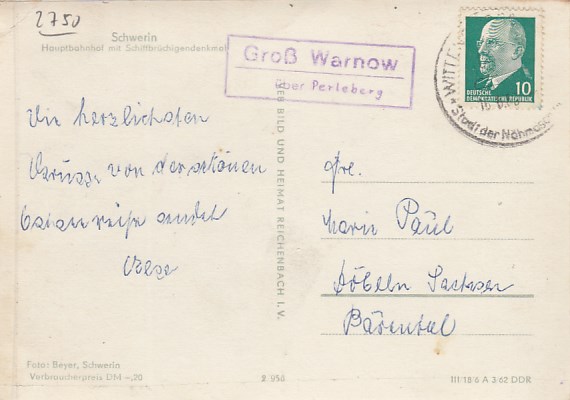 2750
Schwerin
Hauptbahnhof mit Schiffbrüchigendenkmal
Groß Warnow
über Perleberg
WITTE
Stadt der Nähmas
DEUTSCHE
DEMOKRATISCHE REPUBLIK
10
Die herzlichsten
Grüsse von der schönen
Ostseereise sendet
BILD UND HEIMAT REICHENBACH I. V.
Marie Paul
Döbeln Sachsen
Bärental
Foto: Beyer, Schwerin
Verbraucherpreis DM -,20
2 958
III 18/6 A 3/62 DDR